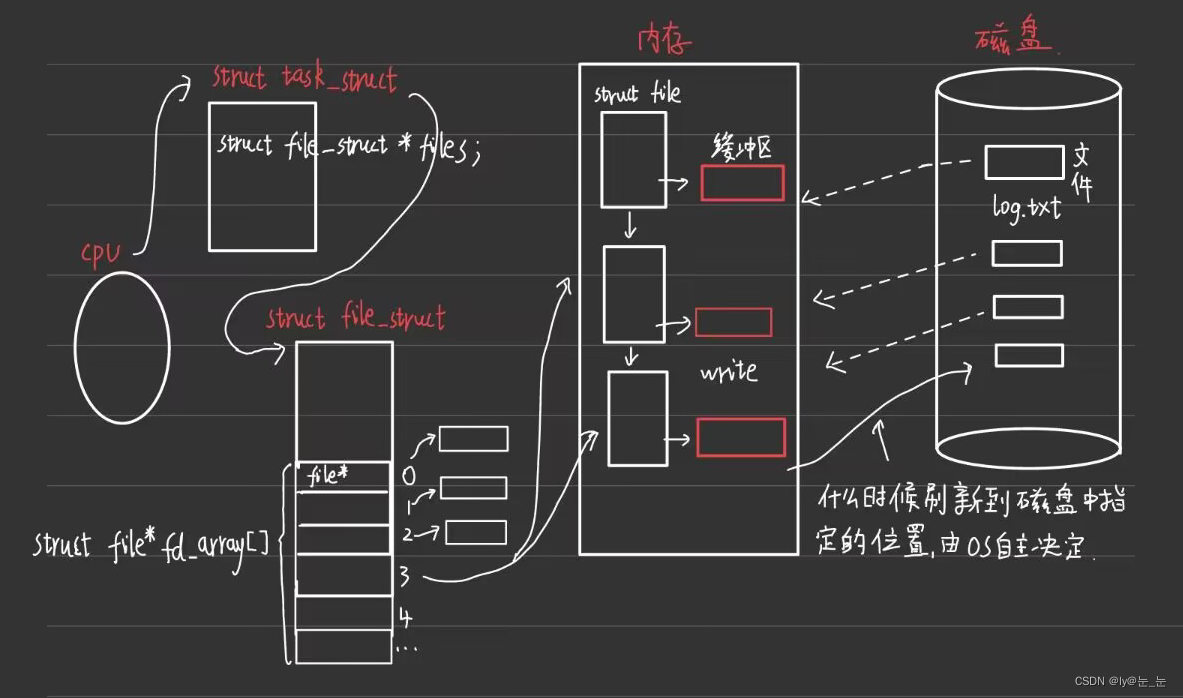 内存
磁盘
struct task_struct
struct file
struct file_struct * files;
缓冲区
文件
log.txt
CPU
struct file_struct
write
file*
0
1
2
struct file* fd_array[]
3
4
...
什么时候刷新到磁盘中指
定的位置,由OS自主决定.
CSDN @ly@눈_눈